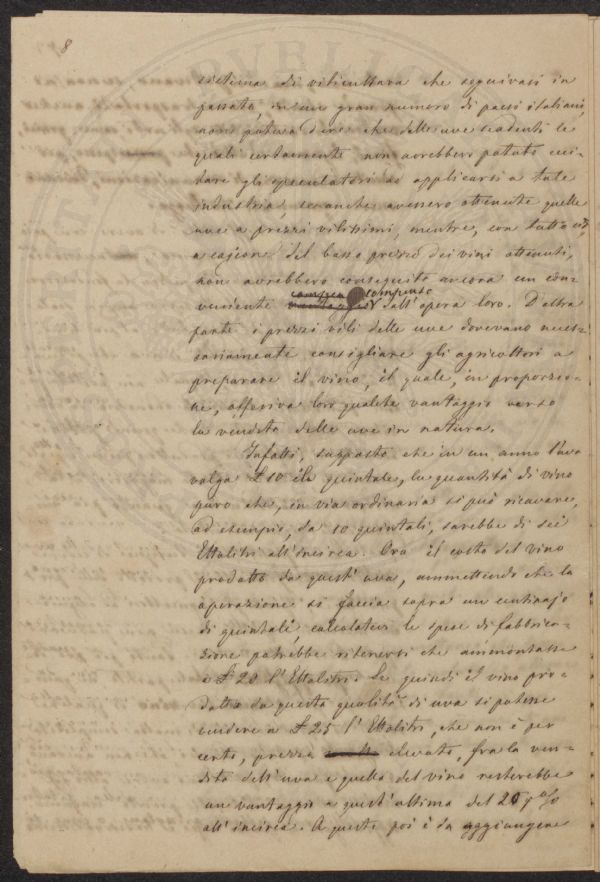 8
sistema di viticultura che seguivasi in
passato, in un gran numero di paesi italiani,
non poteva dare che delle uve scadenti le
quali certamente non avrebbero potuto ecci-
tare gli speculatori ad applicarsi a tale
industria, se anche avessero ottenute quelle
uve a prezzi vilissimi, mentre, con tutto ciò,
a cagione del basso prezzo dei vini ottenuti,
non avrebbero conseguito ancora un con-
veniente compenso dall'opera loro. D'altra
parte i prezzi vili delle uve dovevano neces-
sariamente consigliare gli agricoltori a
preparare il vino, il quale, in proporzio-
ne, offeriva loro qualche vantaggio verso
la vendita delle uve in natura.
Infatti, supposto che in un anno l'uva
valga £ 10 il quintale, la quantità di vino
puro che, in via ordinaria si può ricavare,
ad esempio, da 10 quintali, sarebbe di sei
Ettolitri all'incirca. Ora il costo del vino
prodotto da quest'uva, ammettendo che la
operazione si faccia sopra un centinajo
di quintali, calcolatevi le spese di fabbrica-
zione potrebbe ritenersi che ammontasse
a £ 20 l'Ettolitri. Se quindi il vino pro-
dotto da questa qualità di uva si potesse
vendere a £ 25 l'Ettolitri, che non è per
certo, prezzo elevato, fra la ven-
dita dell'uva e quella del vino resterebbe
un vantaggio a quest'ultima del 20 p%
all'incirca. A questo poi è da aggiungere